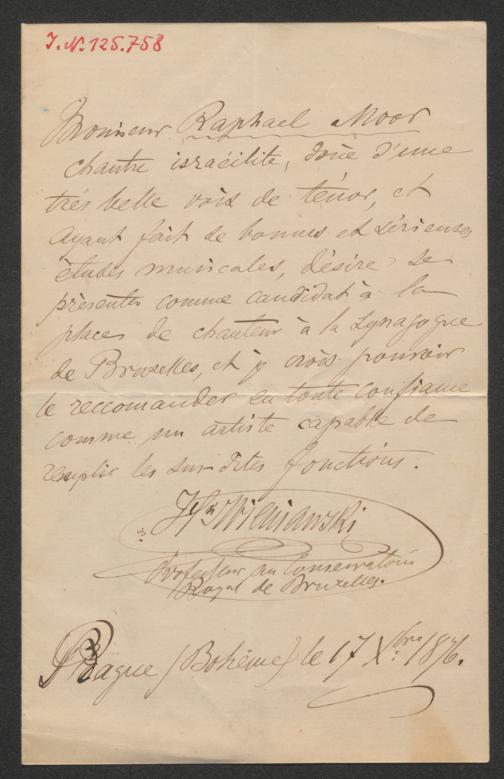 J.N. 125.758
Monsieur Raphael Moor
chantre israëlite, doué d'une
très belle voix de ténor, et
ayant fait de bonnes et sérieuses
études musicales, désire se
présenter comme candidat à la
place de chanteur à la Synagogue
de Bruxelles, et je crois pouvoir
le reccomander en toute confiance
comme un artiste capable de
remplir les sus-dites fonctions.
Wieniawski
Professeur au Conservatoire
Royal de Bruxelles.
Prague (Bohême) le 17 Xbre 1876.